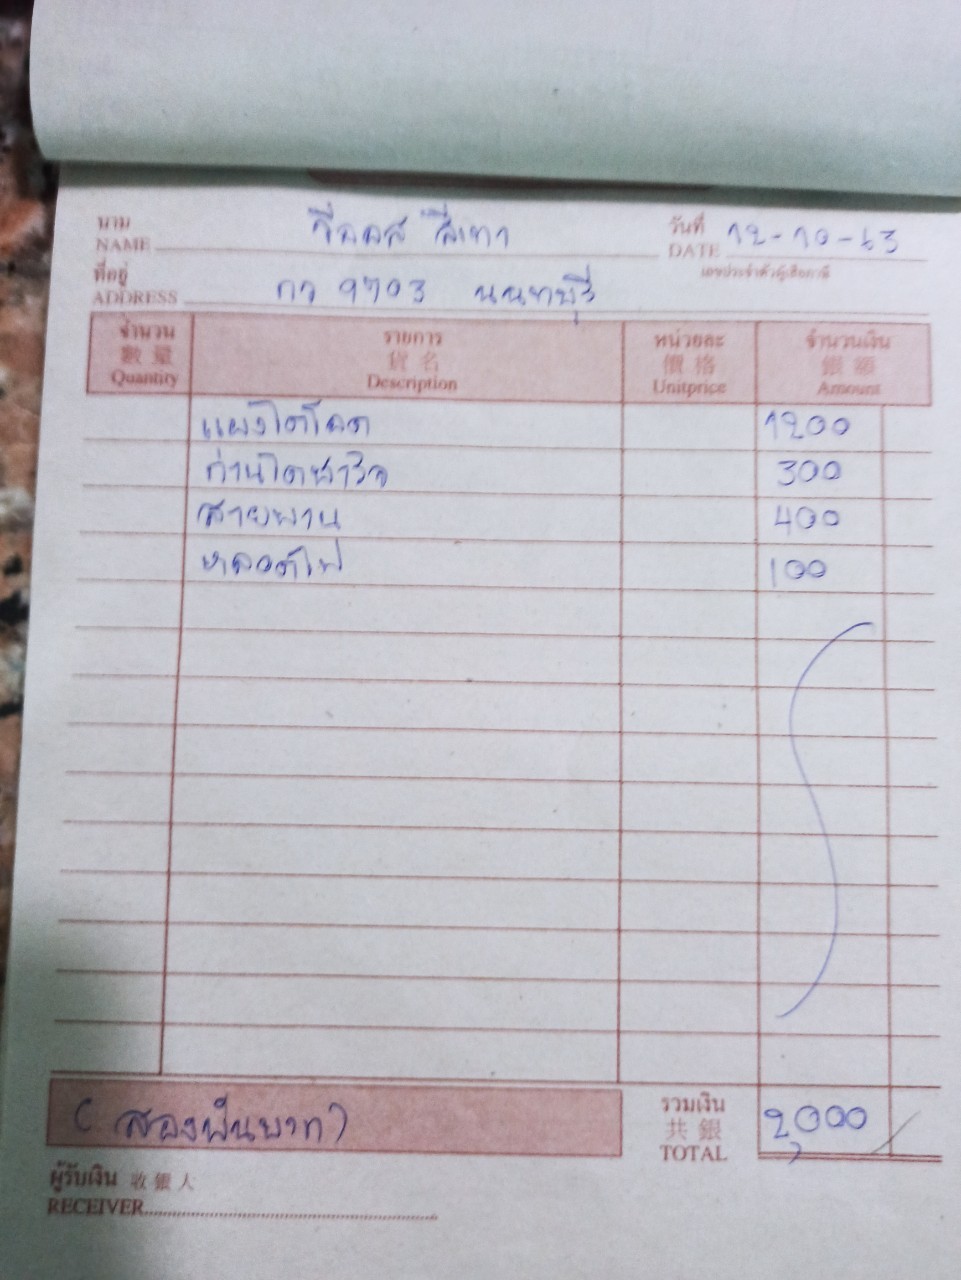 นาม วันที่
NAME วีออส สีเทา DATE 12-10-63
ที่อยู่ เลขประจำตัวผู้เสียภาษี
ADDRESS กว 9703 นนทบุรี
จำนวน รายการ หน่วยละ จำนวนเงิน
數量 貨名 價格 銀額
Quantity Description Unitprice Amount
แผงไดโอด 1200
ถ่านไดชาร์จ 300
สายพาน 400
หลอดไฟ 100
(สองพันบาท) รวมเงิน 2,000
共銀
TOTAL
ผู้รับเงิน 收銀人
RECEIVER